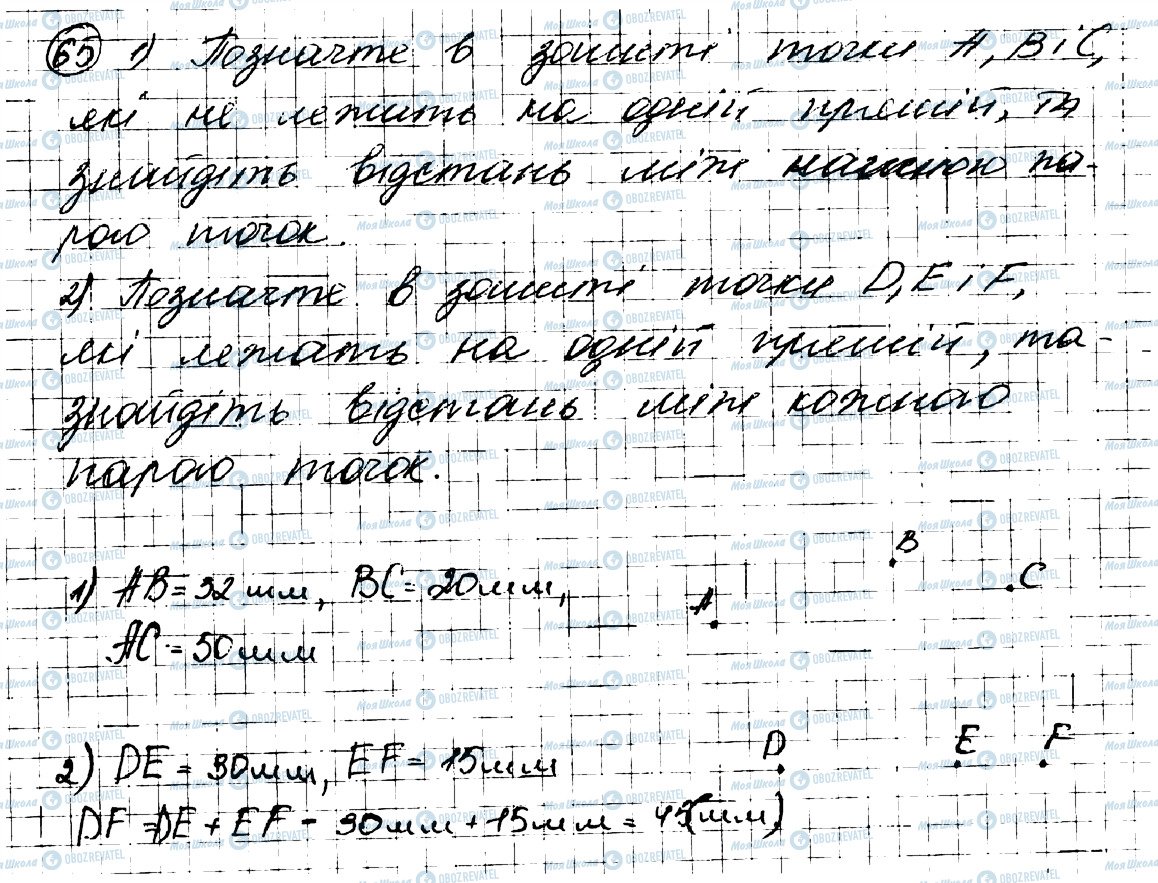 65 1) Позначте в зошиті точки A, B і C,
які не лежать на одній прямій, та
знайдіть відстань між кожною па-
рою точок.
2) Позначте в зошиті точки D, E і F,
які лежать на одній прямій, та
знайдіть відстань між кожною
парою точок.
1) AB = 32 мм, BC = 20 мм,
AC = 50 мм
A B C
2) DE = 30 мм, EF = 15 мм
D E F
DF = DE + EF = 30 мм + 15 мм = 45 (мм)
МояШкола OBOZREVATEL